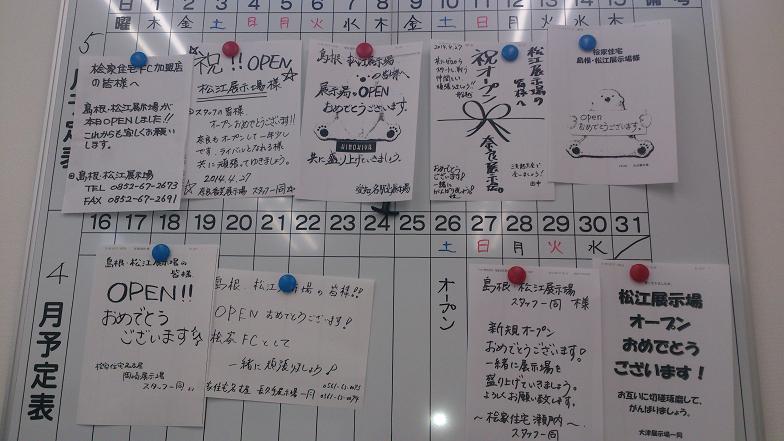 日 1 2 3 4 5 6 7 8 9 10 11 12 13 14 15 備考
曜 木 金 土 日 月 火 水 木 金 土 日 月 火 水 木
5
月予定表
桧家住宅FC加盟店
の皆様へ
島根・松江展示場が
本日OPENしました!!
これからも宜しくお願い
します。
島根・松江展示場
TEL 0852-67-2673
FAX 0852-67-2691
祝!!OPEN
松江展示場様
スタッフの皆様
オープンおめでとうございます!!
奈良もオープンして一年少し
です。ライバルとなれる様
共に頑張ってゆきましょう。
2014.4.27
スタッフ一同
島根 松江展示場
の皆様へ
展示場OPEN
おめでとうございます。
HINOKIYA
共に盛り上げていきましょう。
2014.4.27
祝オープン
松江展示場の
皆様へ
奈良展示場
おめでとう
ございます!
一緒に
がんばりましょう!
田中
桧家住宅
島根・松江展示場様
open
おめでとうございます。
16 17 18 19 20 21 22 23 24 25 26 27 28 29 30 31
土 日 月 火 水
4
月予定表
オープン
島根・松江展示場の
皆様
OPEN!!
おめでとう
ございます
桧家住宅名古屋
岡崎展示場
スタッフ一同
島根、松江展示場の皆様!!
OPENおめでとうございます!
桧家FCとして
一緒に頑張りましょう!
島根・松江展示場
スタッフ一同 様
新規オープン
おめでとうございます!
一緒に展示場を
盛り上げていきましょう。
よろしくお願い致します。
〜桧家住宅 瀬戸内〜
スタッフ一同
松江展示場
オープン
おめでとう
ございます！
お互いに切磋琢磨して、
がんばりましょう。
大津展示場一同